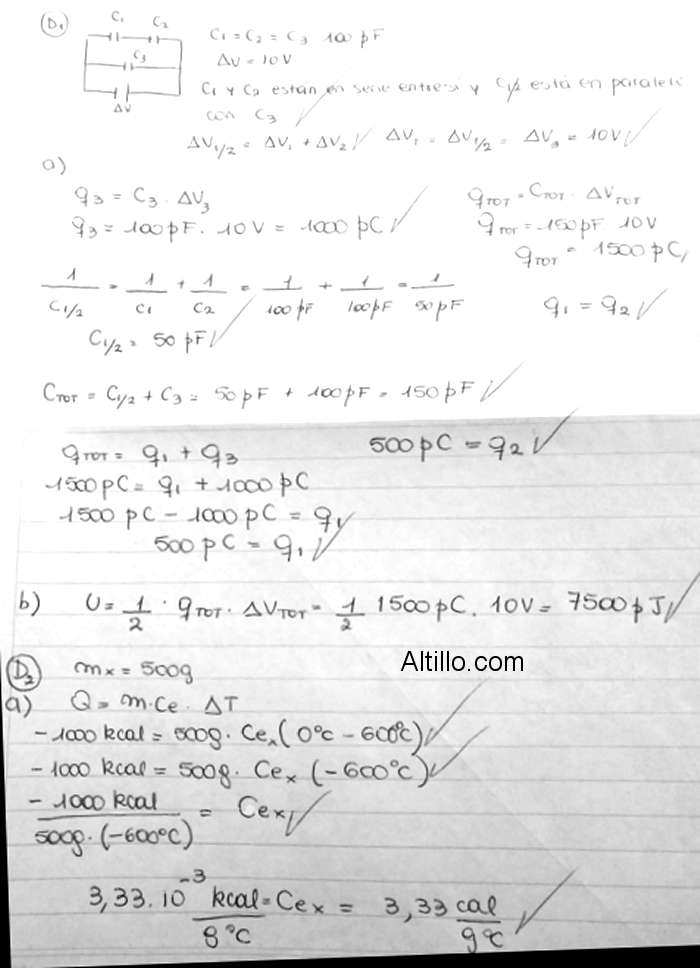 D1
C1 C2
C3
ΔV
C1 = C2 = C3 100 pF
ΔV = 10V
C1 y C2 están en serie entre sí y C1/2 está en paralelo
con C3
ΔV1/2 = ΔV1 + ΔV2 ΔVT = ΔV1/2 = ΔV3 = 10V
a)
q3 = C3 . ΔV3
q3 = 100 pF . 10V = 1000 pC
qTOT = CTOT . ΔVTOT
qTOT = 150 pF. 10V
qTOT = 1500 pC
1/C1/2 = 1/C1 + 1/C2 = 1/100 pF + 1/100 pF = 1/50 pF
q1 = q2
C1/2 = 50 pF
CTOT = C1/2 + C3 = 50 pF + 100 pF = 150 pF
qTOT = q1 + q3
500 pC = q2
1500 pC = q1 + 1000 pC
1500 pC - 1000 pC = q1
500 pC = q1
b) U = 1/2 . qTOT . ΔVTOT = 1/2 1500 pC . 10V = 7500 pJ
Altillo.com
D2 mx = 500g
a) Q = m.Ce . ΔT
-1000 kcal = 500g. Cex (0°C - 600°C)
-1000 kcal = 500g. Cex (-600°C)
-1000 kcal / 500g. (-600°C) = Cex
3,33.10⁻³ kcal/g°C = Cex = 3,33 cal/g°C